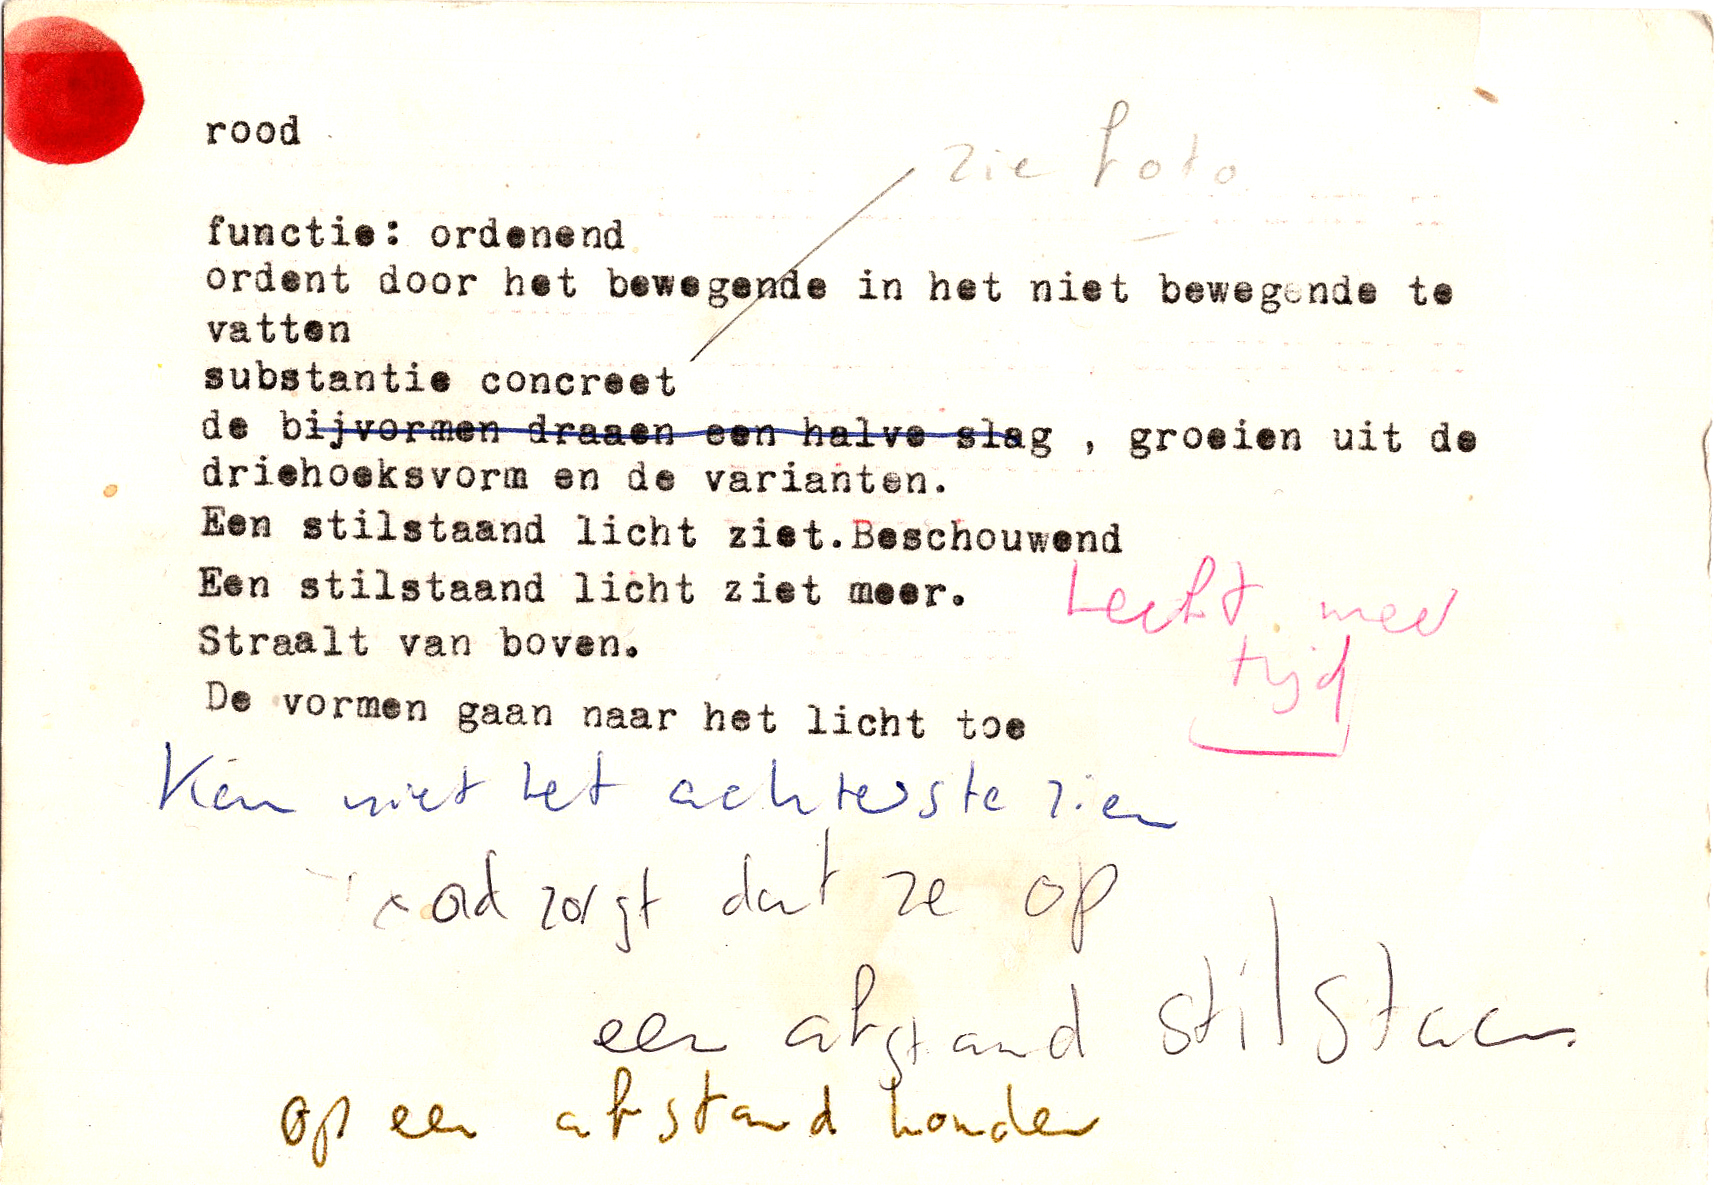 rood
zie foto
functie: ordenend
ordent door het bewegende in het niet bewegende te
vatten
substantie concreet
de bijvormen draaen een halve slag , groeien uit de
driehoeksvorm en de varianten.
Een stilstaand licht ziet.Beschouwend
Een stilstaand licht ziet meer.
Straalt van boven.
tijd
De vormen gaan naar het licht toe
niet het achterste zien
zorgt dat ze op
een afstand stilstaan.
op een afstand houden